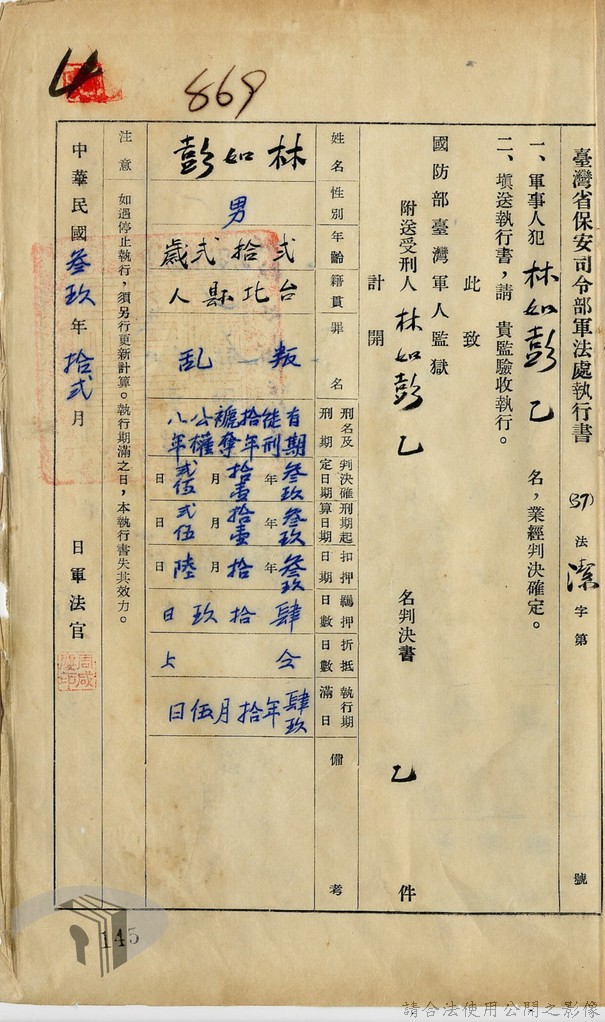 869
臺灣省保安司令部軍法處執行書 (37) 法 潔 字第 號
一、軍事人犯 林如彭 乙 名，業經判決確定。
二、塡送執行書，請 貴監驗收執行。
此致
國防部臺灣軍人監獄
附送受刑人 林如彭 乙 名判決書 乙 件
計開
姓名 林如彭
性別 男
年齡 弍拾弍歲
籍貫 台北縣人
罪名 叛乱
刑名及刑期 有期徒刑拾年褫奪公權八年
判決確定日期 叁玖年拾壹月弍伍日
刑期起算日期 叁玖年拾壹月弍伍日
扣押日期 叁玖年拾月陸日
羈押日數 肆拾玖日
折抵日數 仝上
執行期滿日 肆玖年拾月伍日
備考
注意 如過停止執行，須另行更新計算。執行期滿之日，本執行書失其效力。
中華民國叁玖年拾弍月 日軍法官
145
請合法使用公開之影像